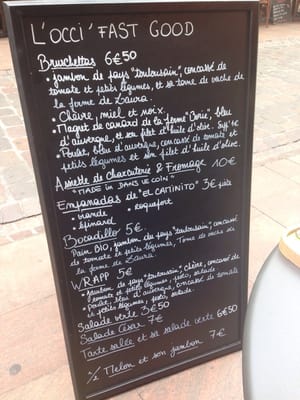 L'OCCI' FAST GOOD
Bruschettas 6€50
• Jambon de pays "toulousain", concassé de
tomate et petits légumes, et sa tome de vache de
la ferme de Laura.
• Chèvre, miel et noix.
• Magret de canard de la ferme, bleu
d'auvergne, et son filet d'huile d'olive.
• Poulet, bleu d'auvergne, concassé de tomate et
petits légumes et son filet d'huile d'olive.
Assiette de charcuterie & Fromage 10€
"MADE IN DANS LE COIN"
Empanadas de "EL CAMINITO" 3€ pièce
• viande • roquefort
• épinard
Bocadillo 5€
Pain BIO, jambon de pays "toulousain", concassé
de tomate et petits légumes, Tome de vache de
la ferme de Laura
WRAPP 5€
• Jambon de pays "toulousain", chèvre, concassé de
tomate et petits légumes, pesto, salade
• Poulet, bleu d'auvergne, concassé de tomate
et petits légumes, pesto, salade.
Salade verte 3€50
Salade César 7€
Tarte salée et sa salade verte 6€50
1/2 Melon et son jambon 7€